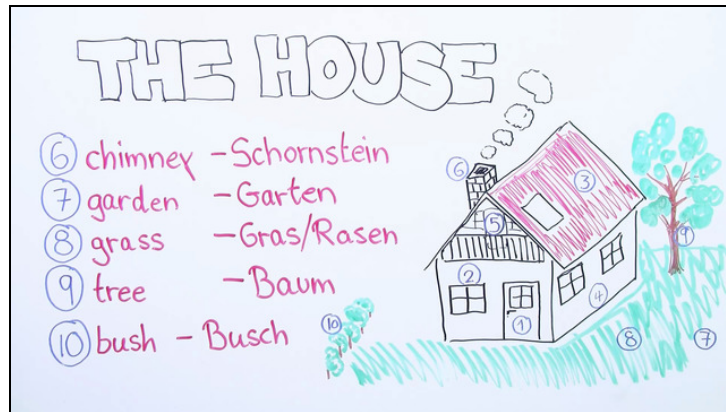 THE HOUSE
6 chimney - Schornstein
7 garden - Garten
8 grass - Gras/Rasen
9 tree - Baum
10 bush - Busch
6
3
5
9
2
4
10
1
8
7